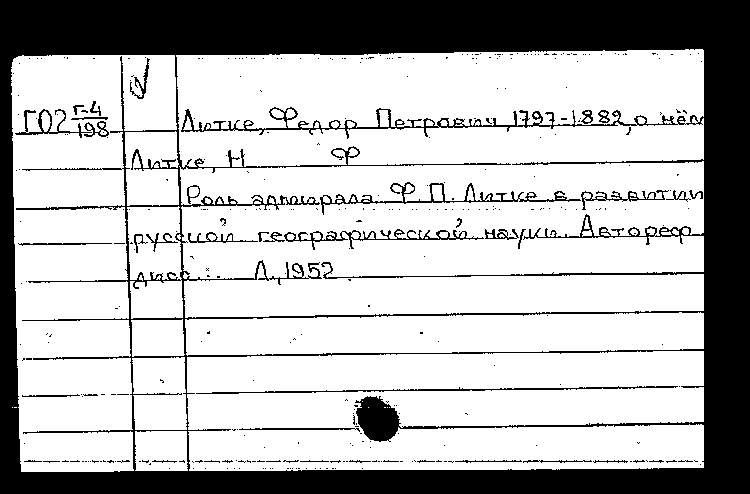 ГО2 Г-4/198 Литке, Федор Петрович, 1797-1882, о нём
Литке, Н Ф
Роль адмирала Ф. П. Литке в развитии
русской географической науки. Автореф.
дисс... Л., 1952